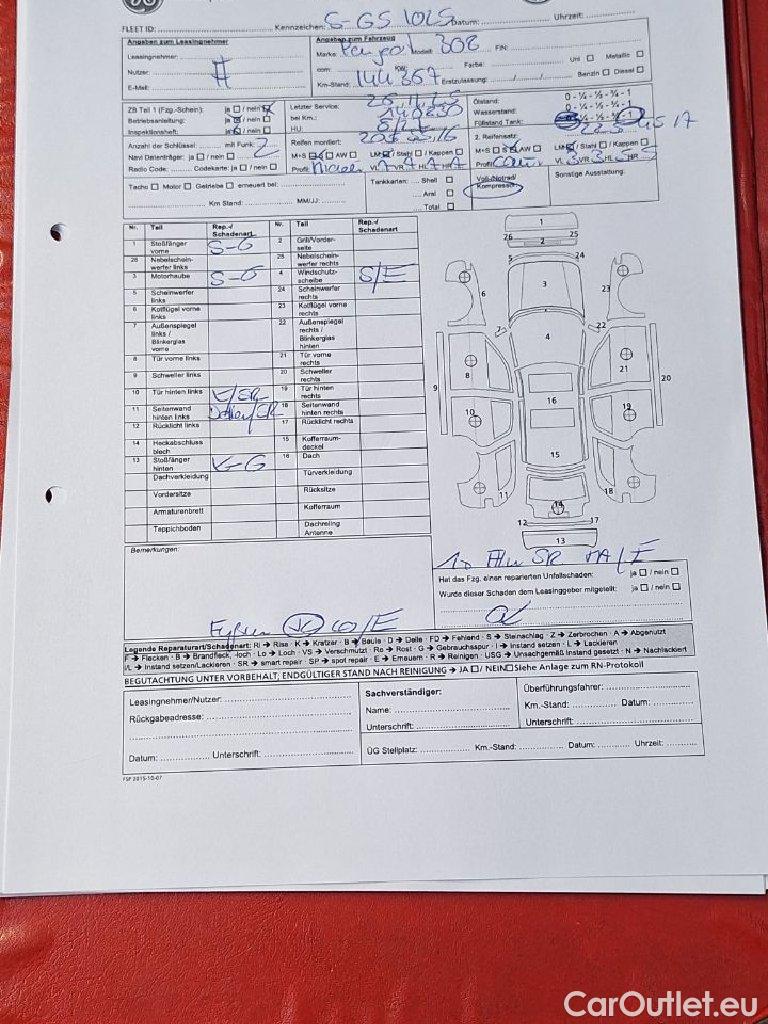 FLEET ID: Kennzeichen: S-GS 1025 Datum: Uhrzeit:
Angaben zum Leasingnehmer
Leasingnehmer:
Nutzer:
E-Mail:
Angaben zum Fahrzeug
Marke Peugeot Modell 308 FIN:
ccm: KW: Farbe: Uni ☐ Metallic ☐
Km-Stand: 144 367 Erstzulassung: Benzin ☐ Diesel ☐
ZB Teil 1 (Fzg.-Schein): ja ☐ / nein ☒
Betriebsanleitung: ja ☒ / nein ☐
Inspektionsheft: ja ☒ / nein ☐
Anzahl der Schlüssel: mit Funk: 2
Navi Datenträger: ja ☐ / nein ☐
Radio Code: Codekarte: ja ☐ / nein ☐
Letzter Service:
bei Km.:
HU:
Reifen montiert:
M+S ☒ AW ☐ LM ☒ / Stahl ☐ / Kappen ☐
Profil VL 7 VR 7 HL 7 HR 7
Ölstand: 0 - ¼ - ½ - ¾ - 1
Wasserstand: 0 - ¼ - ½ - ¾ - 1
Füllstand Tank: ¼ - ½ - ¾ - 1
2. Reifensatz: 225 45 17
M+S ☐ AW ☐ LM ☒ / Stahl ☐ / Kappen ☐
Profil VL 3 VR 3 HL 5 HR 5
Tacho ☐ Motor ☐ Getriebe ☐ erneuert bei:
Km Stand: MM/JJ:
Tankkarten: Shell ☐
Aral ☐
Total ☐
Voll-/Notrad/
Kompressor
Sonstige Ausstattung:
Nr. Teil Rep.-/ Schadenart Nr. Teil Rep.-/ Schadenart
1 Stoßfänger vorne S-G 2 Grill/Vorderseite
26 Nebelscheinwerfer links 25 Nebelscheinwerfer rechts
3 Motorhaube S-G 4 Windschutzscheibe S/E
5 Scheinwerfer links 24 Scheinwerfer rechts
6 Kotflügel vorne links 23 Kotflügel vorne rechts
7 Außenspiegel links / Blinkerglas vorne 22 Außenspiegel rechts / Blinkerglas hinten
8 Tür vorne links 21 Tür vorne rechts
9 Schweller links 20 Schweller rechts
10 Tür hinten links K/SR 19 Tür hinten rechts
11 Seitenwand hinten links 18 Seitenwand hinten rechts
12 Rücklicht links 17 Rücklicht rechts
14 Heckabschlussblech 15 Kofferraumdeckel
13 Stoßfänger hinten K-G 16 Dach
Dachverkleidung Türverkleidung
Vordersitze Rücksitze
Armaturenbrett Kofferraum
Teppichboden Dachreling Antenne
1
26 2 25
5 24
6 3 23
7 4 22
8 21
9 20
10 16 19
15
11 18
14
12 17
13
Bemerkungen:
Hat das Fzg. einen reparierten Unfallschaden: ja ☐ / nein ☐
Wurde dieser Schaden dem Leasinggeber mitgeteilt: ja ☐ / nein ☐
Legende Reparaturart/Schadenart: RI → Riss · K → Kratzer · B → Beule · D → Delle · FD → Fehlend · S → Steinschlag · Z → Zerbrochen · A → Abgenutzt
F → Flecken · B → Brandfleck, -loch · Lo → Loch · VS → Verschmutzt · Ro → Rost · G → Gebrauchsspur · I → Instand setzen · L → Lackieren
I/L → Instand setzen/Lackieren · SR → smart repair · SP → spot repair · E → Erneuern · R → Reinigen · USG → Unsachgemäß instand gesetzt · N → Nachlackiert
BEGUTACHTUNG UNTER VORBEHALT; ENDGÜLTIGER STAND NACH REINIGUNG → JA ☐ / NEIN ☐ Siehe Anlage zum RN-Protokoll
Leasingnehmer/Nutzer:
Rückgabeadresse:
Datum: Unterschrift:
Sachverständiger:
Name:
Unterschrift:
Überführungsfahrer:
Km.-Stand: Datum:
Unterschrift:
ÜG Stellplatz: Km.-Stand: Datum: Uhrzeit:
FSP 2015-10-07
CarOutlet.eu